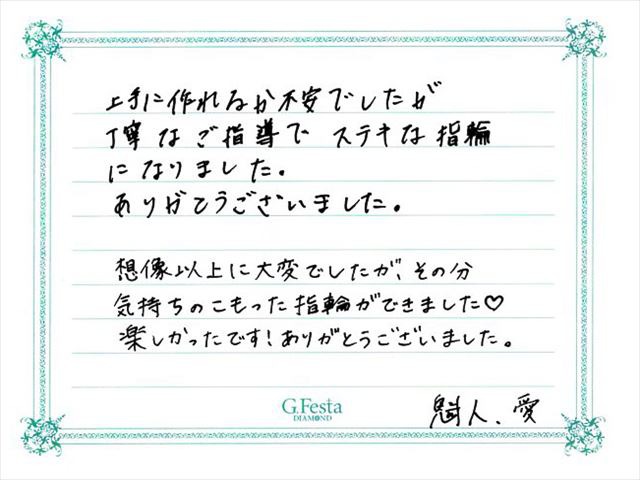 上手に作れるか不安でしたが
丁寧なご指導で ステキな指輪
になりました。
ありがとうございました。
想像以上に大変でしたが、その分
気持ちのこもった指輪ができました♡
楽しかったです!ありがとうございました。
G.Festa
DIAMOND
魁人、愛